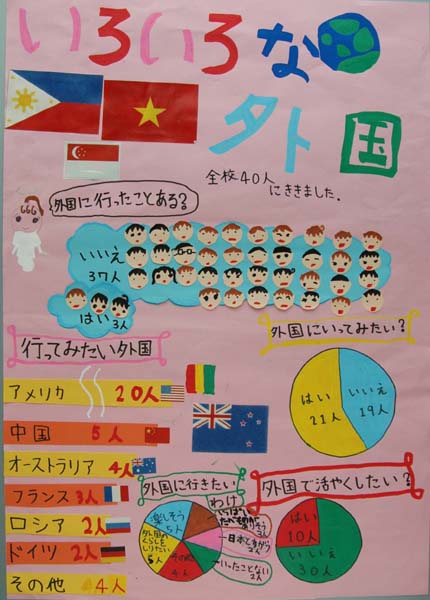 いろいろな
外国
全校40人
にききました.
外国に行ったことある?
いいえ
37人
はい
3人
行ってみたい外国
アメリカ 20人
中国 5人
オーストラリア 4人
フランス 3人
ロシア 2人
ドイツ 2人
その他 4人
外国にいってみたい?
はい
21人
いいえ
19人
外国に行きたい
わけ
楽しそう
5人
その他
4人
日本とちがう
2人
いったことない
2人
外国で活やくしたい?
はい
10人
いいえ
30人